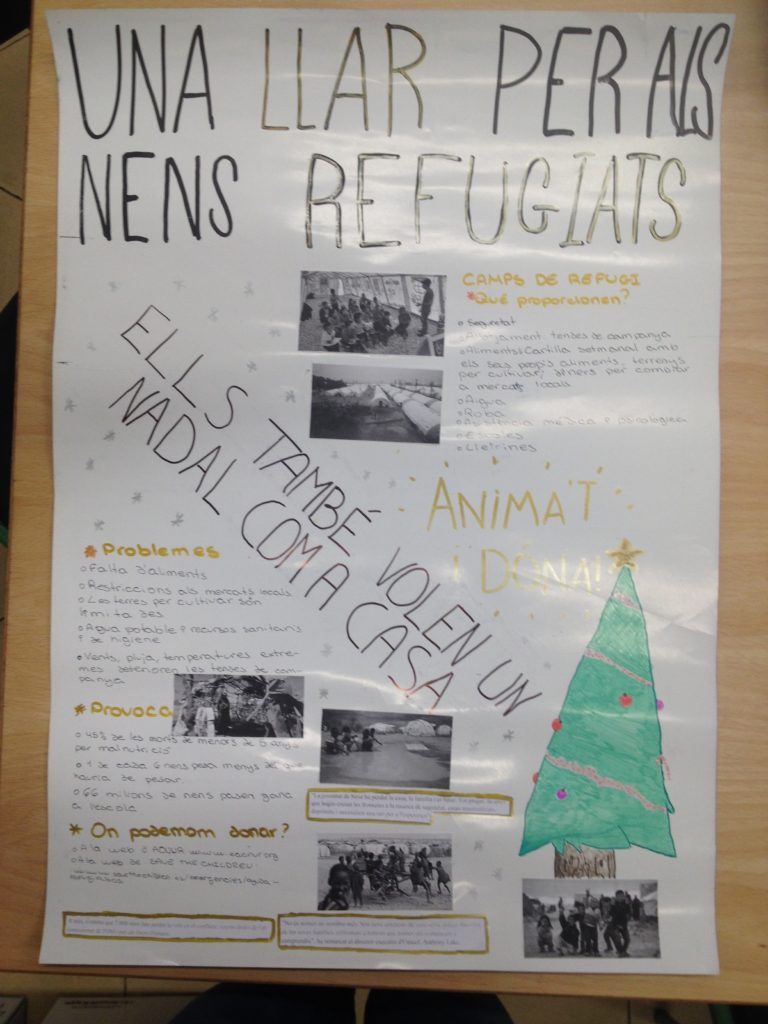 UNA LLAR PER ALS
NENS REFUGIATS
CAMPS DE REFUGI
*Qué proporcionen?
o Seguretat
o Allotjament. tendes de campanya
o Aliments: Cartilla setmanal amb
els seus propis aliments, terrenys
per cultivar, diners per comprar
a mercats locals
o Aigua
o Roba
o Assistència médica i psicològica
o Escoles
o Lletrines
ELLS TAMBÉ VOLEN UN
NADAL COM A CASA
ANIMA'T
I DÓNA!
* Problemes
o Falta d'aliments
o Restriccions als mercats locals
o Les terres per cultivar són
limitades
o Agua potable i recursos sanitaris
i de higiene
o Vents, pluja, temperatures extre-
mes deterioren les tendes de cam-
panya
* Provoca
o 45% de les morts de menors de 5 anys
per malnutrició
o 1 de cada 6 nens pesa menys del que
hauria de pesar
o 66 milions de nens pasen gana
a l'escola
* On podemom donar?
o A la web d'ACNUR www.eacnur.org
o A la web de SAVE THE CHILDREN: